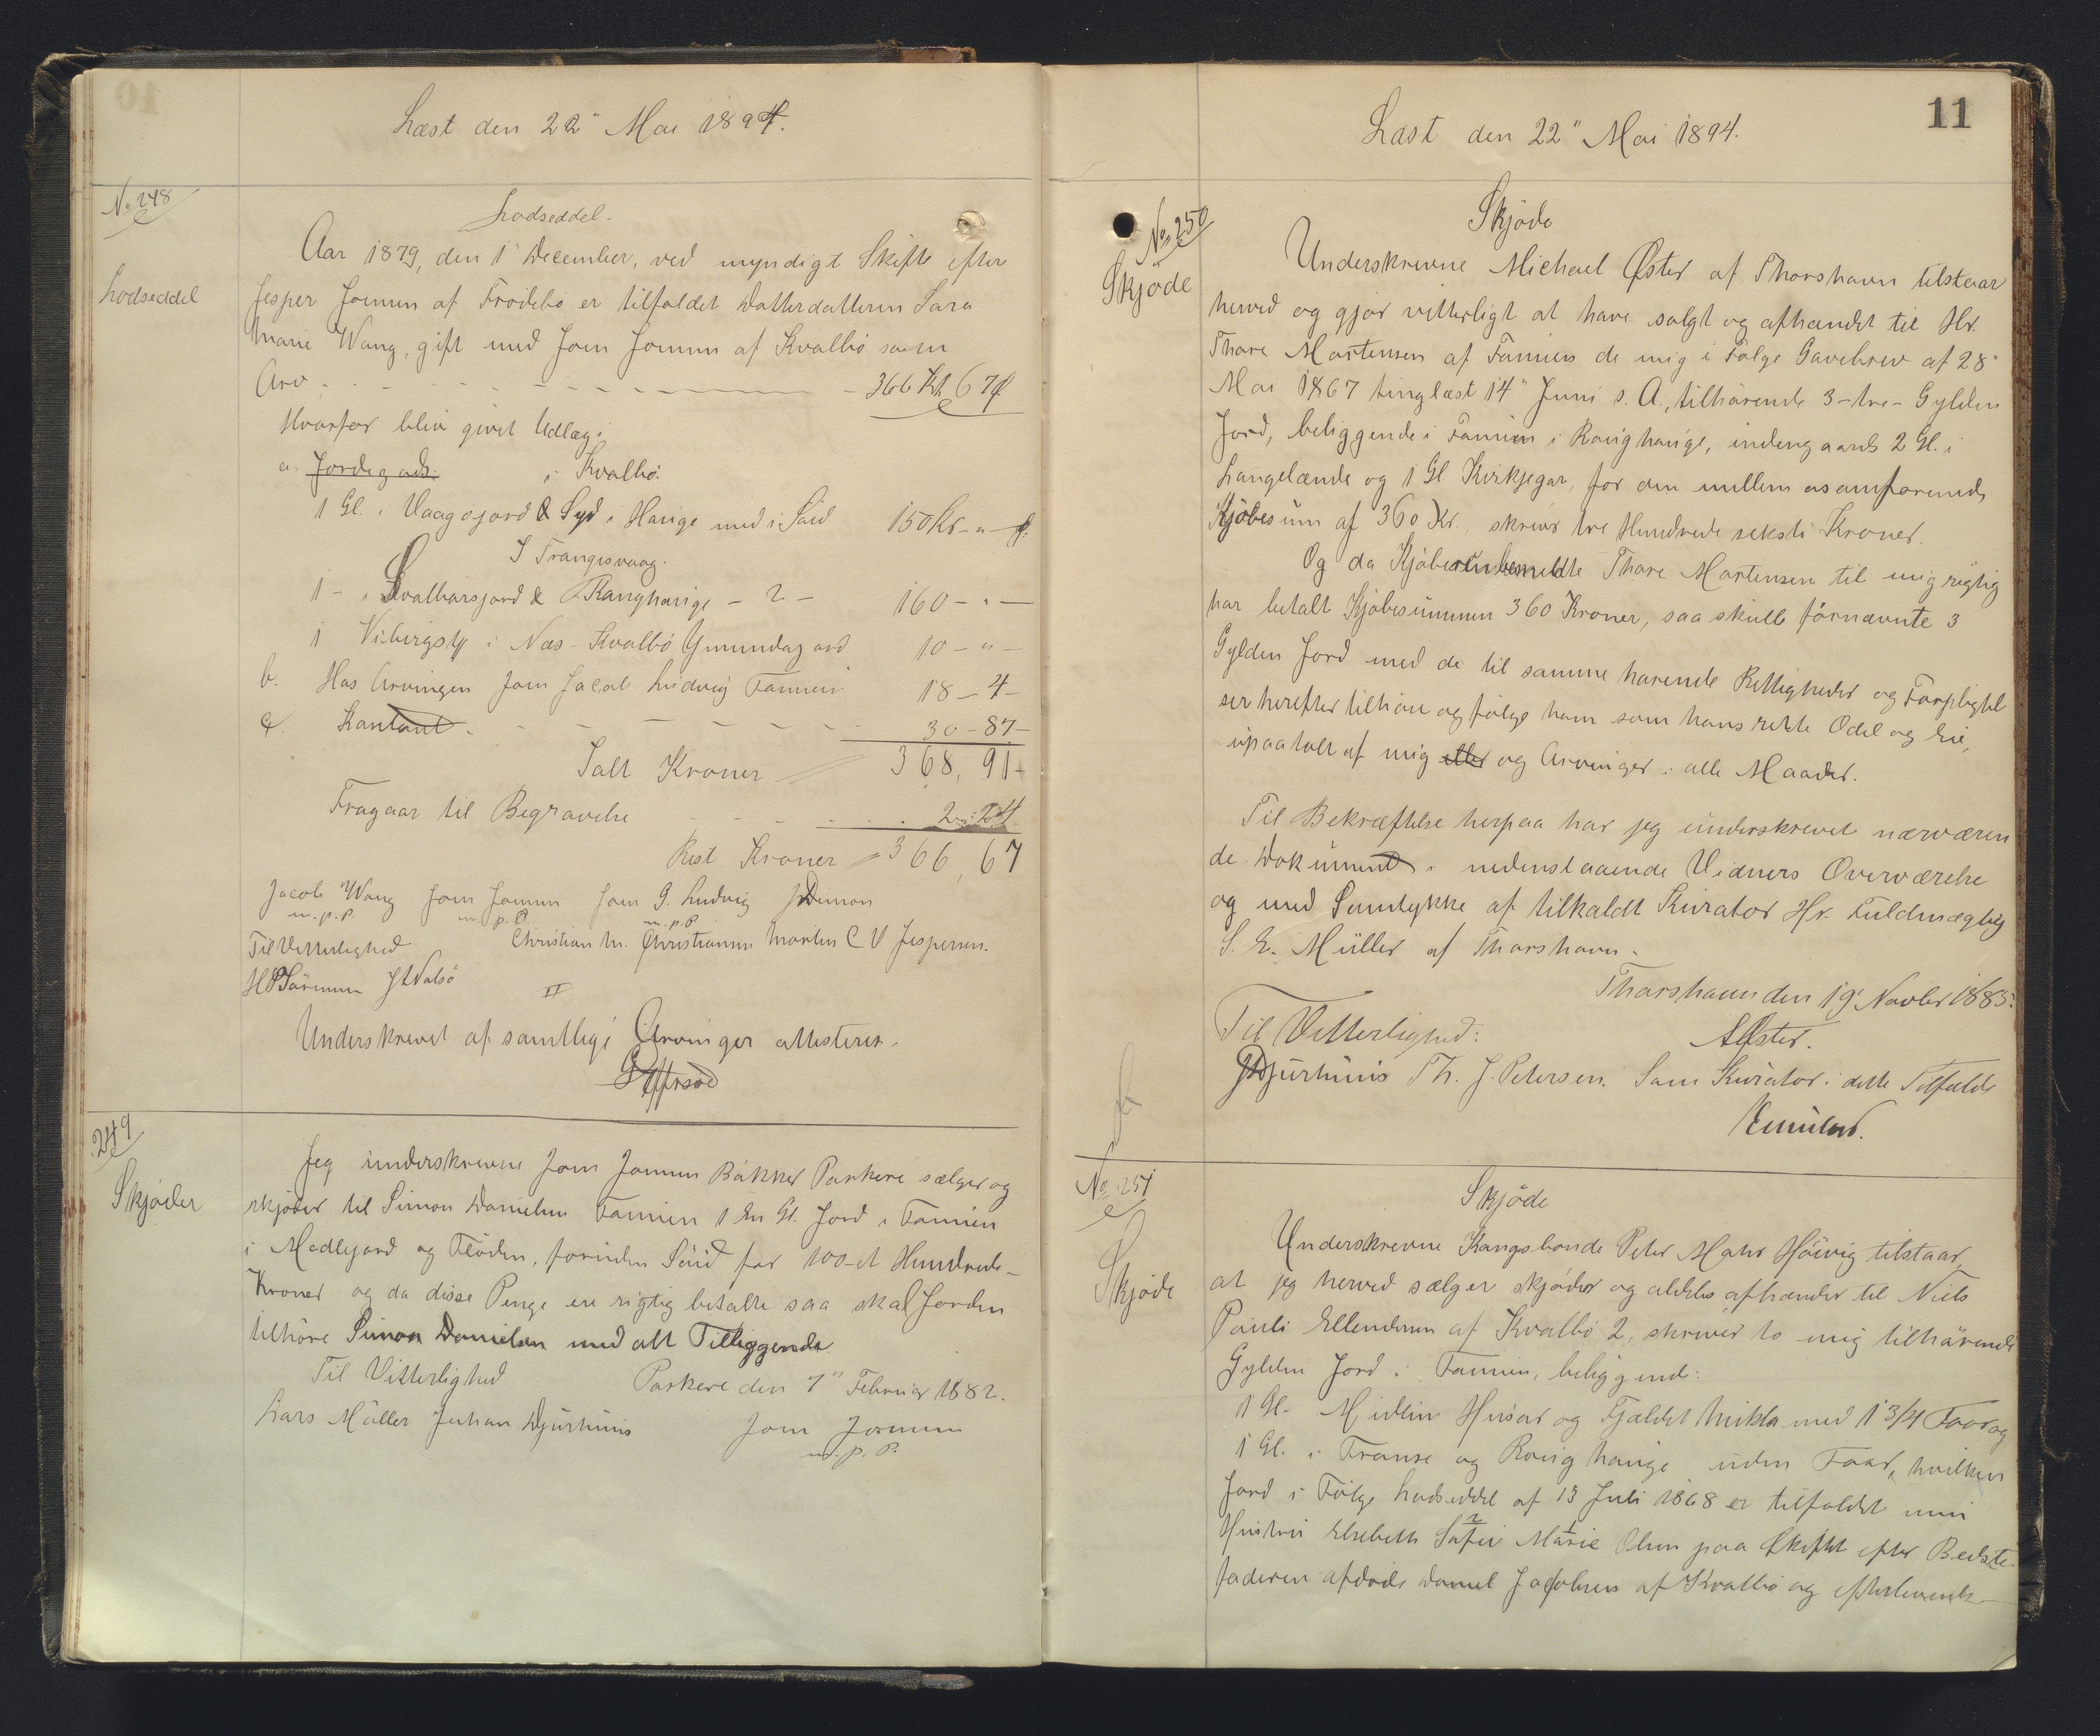 10
Læst den 22" Mai 1894.
No 248
Lodseddel
Lodseddel.
Aar 1879, den 1" December, ved myndigt Skifte efter
Jesper Joensen af Frodebø er tilfaldet Datterdatteren Sara
Marie Wang, gift med Joen Joensen af Kvalbø som
Arv - - - 366 Kr 67 Ø
Hvorfor blev givet Udlæg:
a. Jordegods. i Kvalbø.
1 Gl. i Vaagsjord & Syd i Hauge med i Said 150 Kr - " - Ø.
I Trangisvaag.
1 - i Kvalbarsjord & Ranghauge - 2 - 160 - " -
1 i Næs - Kvalbø 10 - " -
b. Hos Arvingen Joen Jacob Ludvig Famien 18 - 4 -
c. Kontant - - - 30 - 87 -
Ialt Kroner 368, 91 -
Fragaar til Begravelse - - - 2 - 24
Rest Kroner 366, 67
Jacob Wang Joen Joensen Joen J. Ludvig J Dimon
m. p. P. m. p. P. m. p. P.
Til Vitterlighed Christian M. Christiansen Morten C V Jespersen.
Sørensen J Nolsø
Underskrevet af samtlige Arvinger attesteres.
249
Skjøder
Jeg underskrevne Joen Joensen Bakker Porkere sælger og
skjøder til Simon Danielsen Famien 1 En Gl. Jord i Famien
i Medlgjord og Fløden, foruden Seid for 100 - et Hundrede -
Kroner og da disse Penge ere rigtig betalte saa skal Jorden
tilhøre Simon Danielsen med alt Tilliggende.
Til Vitterlighed Porkere den 7" Februar 1882.
Lars Müller Johan Djurhuus Joen Joensen
m. p. P.
11
Læst den 22" Mai 1894.
No 250
Skjøde
Skjøde
Underskrevne Michael Øster af Thorshavn tilstaar
herved og gjør vitterligt at have solgt og afhændet til Hr.
Thore Mortensen af Famien de mig i Følge Gavebrev af 28"
Mai 1867 tinglæst 14" Juni s. A., tilhørende 3 - tre - Gylden
Jord, beliggende i Famien i Roughauge, indengaards 2 Gl. i
Langelænde og 1 Gl Kirkjegar, for den mellem os omforenede
Kjøbesum af 360 Kr., skriver tre Hundrede seksti Kroner.
Og da Kjøberen bemeldte Thore Mortensen til mig rigtig
har betalt Kjøbesummen 360 Kroner, saa skulle fornævnte 3
Gylden Jord med de til samme havende Rettigheder og Forpligtel
ser herefter tilhøre og følge ham som hans rette Odel og Eie,
upaatalt af mig eller og Arvinger i alle Maader.
Til Bekræftelse herpaa har jeg underskrevet nærværen
de Dokument i nedenstaaende Vidners Overværelse
og med Samtykke af tilkaldt Kurator Hr. Fuldmægtig
S. E. Müller af Thorshavn.
Thorshavn den 19' Novber 1885.
Til Vitterlighed: Øster.
Djurhuus Th. J. Petersen. Som Kurator i dette Tilfælde
EMüller.
No 251
Skjøde
Skjøde
Underskrevne Kongsbonde Peter Mohr Høivig tilstaar,
at jeg herved sælger skjøder og aldeles afhænder til Niels
Pauli Ellendersen af Kvalbø 2, skriver to mig tilhørende
Gylden Jord i Famien, beliggende:
1 Gl. Midlin Husar og Fjældet Mikla med 1 3/4 Faar og
1 Gl. i Transe og Roug hauge uden Faar, hvilken
Jord i Følge Lodseddel af 13 Juli 1868 er tilfaldet min
Hustru Elsebeth Sofie Marie Olsen paa Skiftet efter Bedste-
faderen afdøde Daniel Jacobsen af Kvalbø og efterlevende